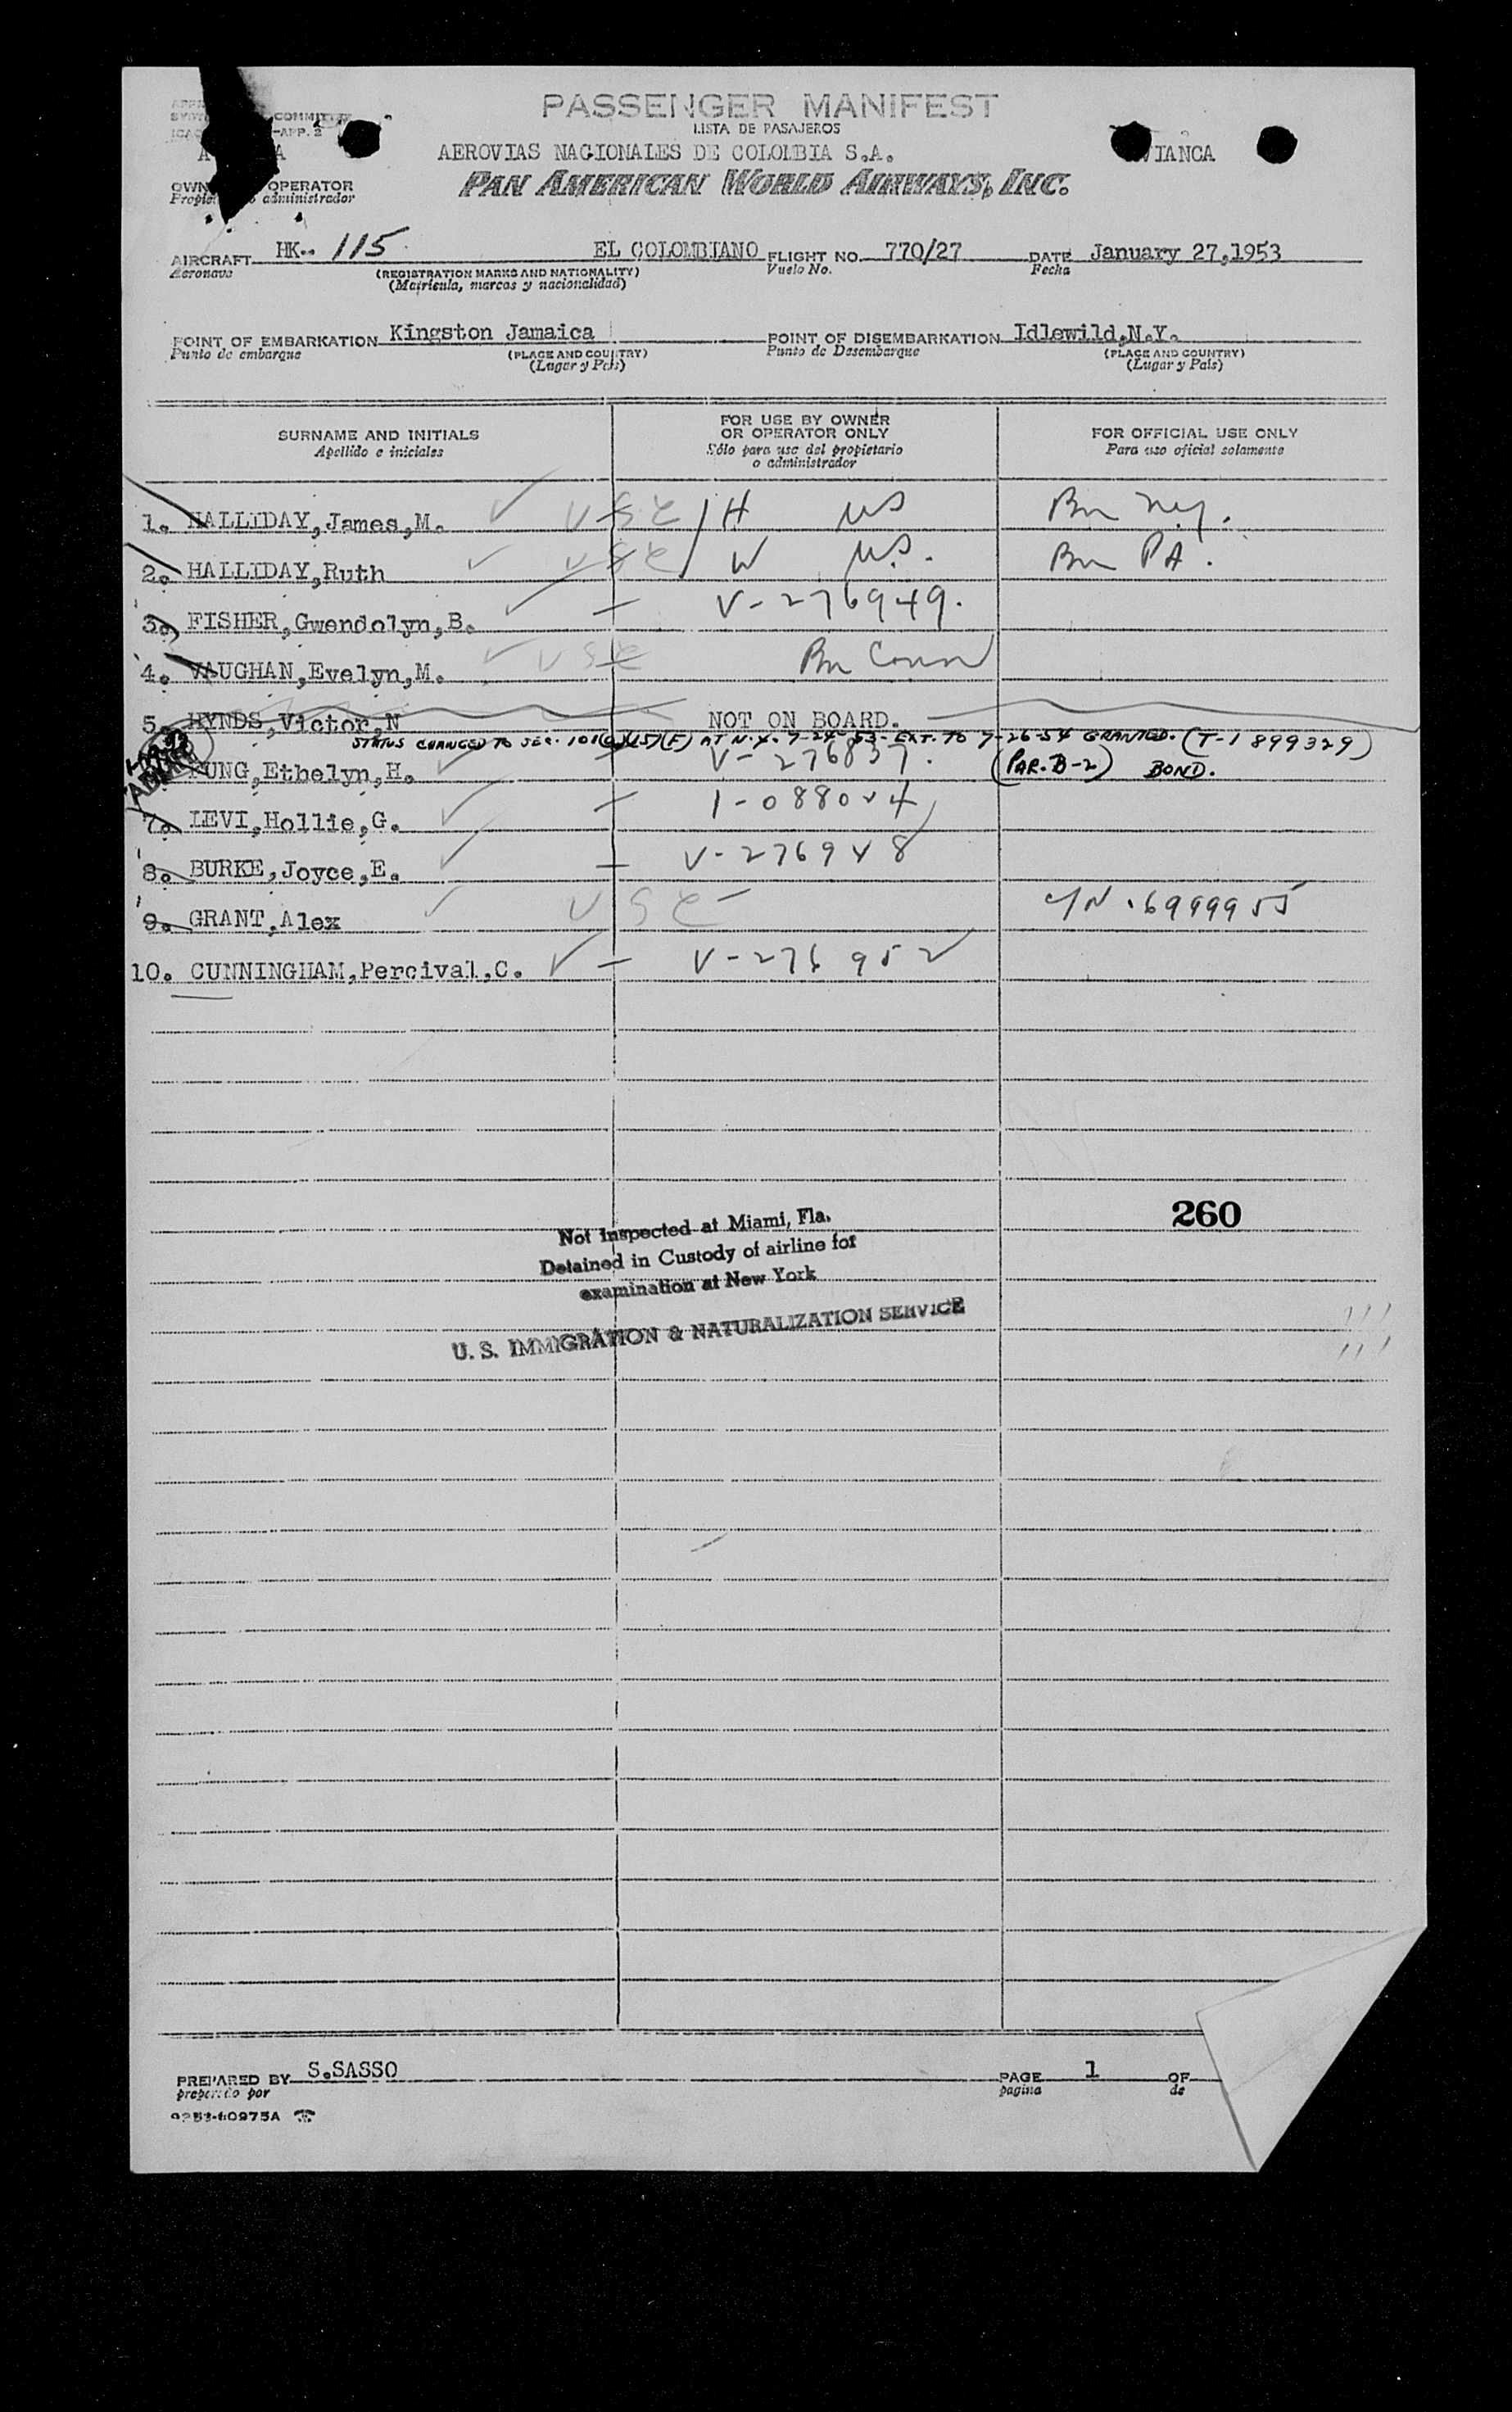 PASSENGER MANIFEST
COMMITTEE
LISTA DE PASAJEROS
-APP. 2
AEROVIAS NACIONALES DE COLOMBIA S.A.
PAN AMERICAN WORLD AIRWAYS, INC.
OPERATOR
administrador
AIRCRAFT HK-- 115 EL COLOMBIANO FLIGHT NO. 770/27 DATE January 27,1953
Aeronave (REGISTRATION MARKS AND NATIONALITY) Vuelo No. Fecha
(Matricula, marcas y nacionalidad)
POINT OF EMBARKATION Kingston Jamaica POINT OF DISEMBARKATION Idlewild,N.Y.
Punto de embarque (PLACE AND COUNTRY) Punto de Desembarque (PLACE AND COUNTRY)
(Lugar y País) (Lugar y País)
SURNAME AND INITIALS
Apellido e iniciales
FOR USE BY OWNER
OR OPERATOR ONLY
Sólo para uso del propietario
o administrador
FOR OFFICIAL USE ONLY
Para uso oficial solamente
1. HALLIDAY,James,M. USC / H US Bn N.Y.
2. HALLIDAY,Ruth USC / W U.S. Bn PA.
3. FISHER,Gwendolyn,B. — V-276949.
4. VAUGHAN,Evelyn,M. USC Bn Conn
5. HYNDS,Victor,N NOT ON BOARD.
STATUS CHANGED TO SEC. 101(a)(15)(F) AT N.Y. 7-24-53- EXT. TO 7-26-54 GRANTED. (T-1899329)
UNG,Ethelyn,H. — V-276837. (PAR. B-2) BOND.
7. LEVI,Hollie,G. — 1-088024
8. BURKE,Joyce,E. — V-276948
9. GRANT,Alex USC — C/N. 6999955
10. CUNNINGHAM,Percival,C. — V-276952
260
Not Inspected at Miami, Fla.
Detained in Custody of airline for
examination at New York
U. S. IMMIGRATION & NATURALIZATION SERVICE
PREPARED BY S.SASSO PAGE 1 OF
preparado por pagina de